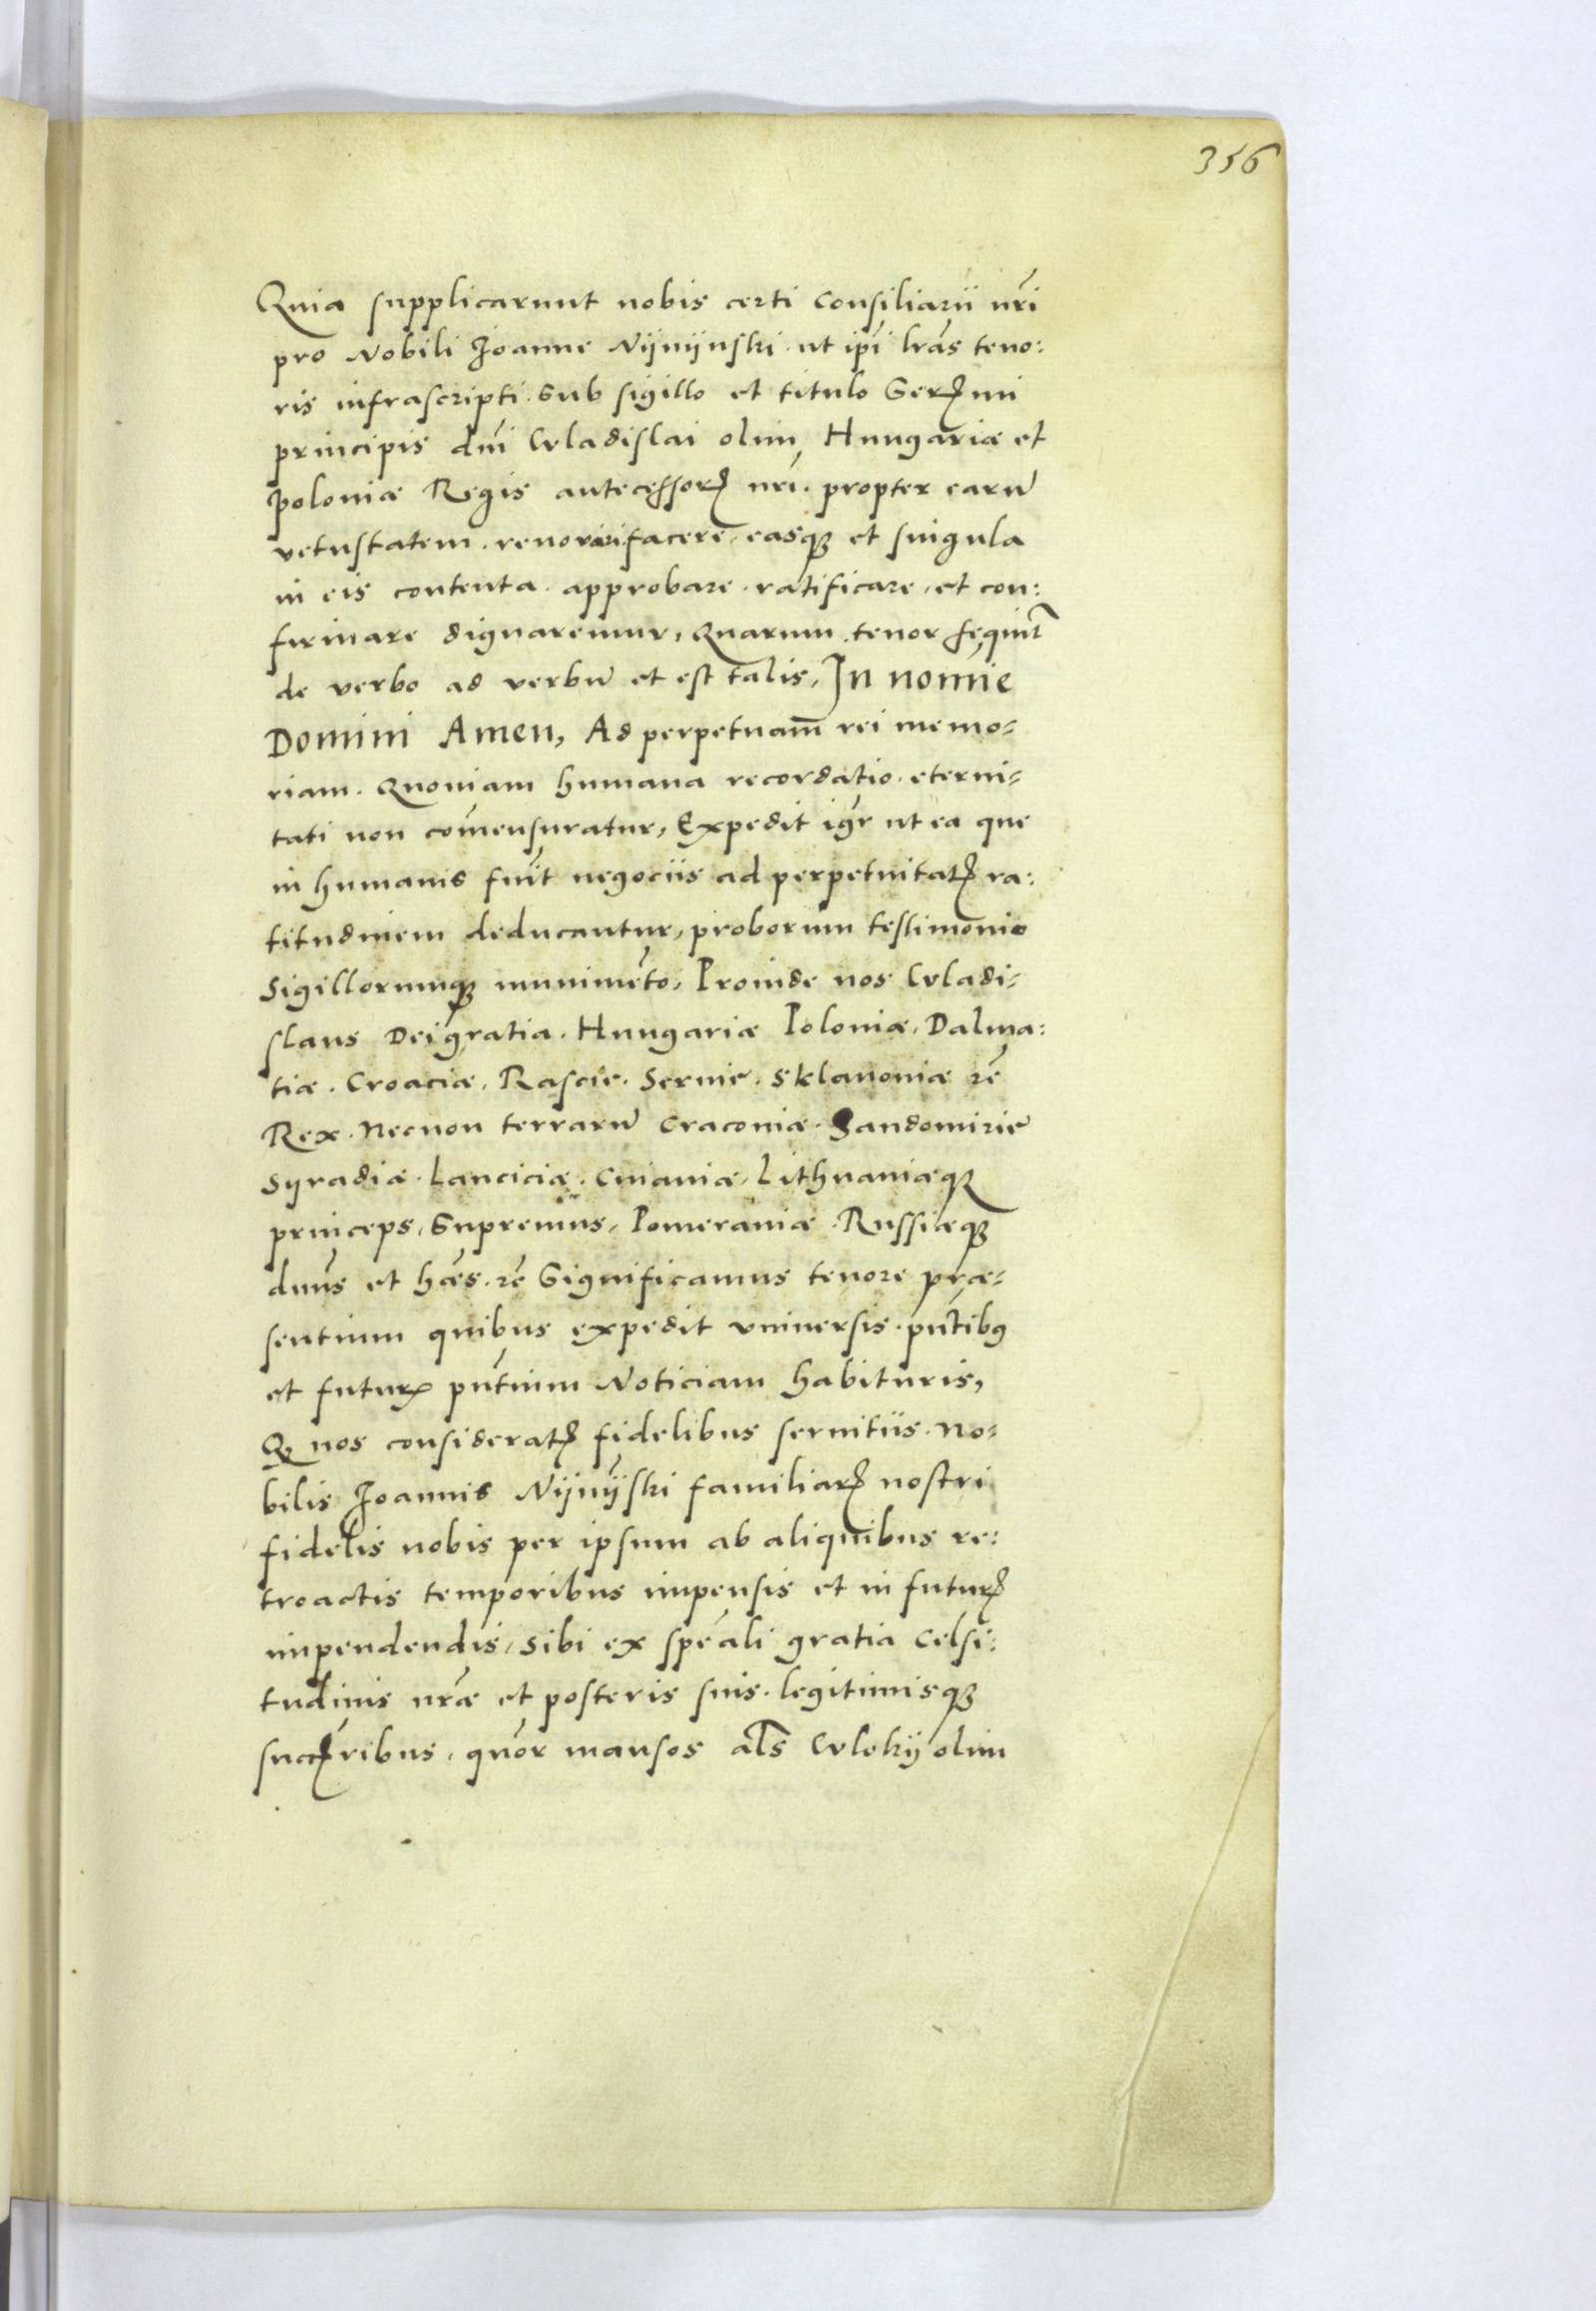 356
Quia supplicarunt nobis certi Consiliarii nr̃i
pro Nobili Joanne Nijnijnski. ut ip̃i lr̃as teno:
ris infrascripti. Sub sigillo et titulo Serꝫmi
principis dñi Wladislai olim, Hungariæ et
Poloniæ Regis antecessorꝫ nr̃i. propter earũ
vetustatem. renovari facere, easqꝫ et singula
in eis contenta. approbare. ratificare, et con:
firmare dignaremur, Quarum tenor sequit̃
de verbo ad verbũ et est talis, In nomĩe
Domini Amen, Ad perpetuam̃ rei memo-
riam. Quoniam humana recordatio. eterni-
tati non com̃ensuratur, Expedit igr̃ ut ea que
in humanis fiũt negociis ad perpetuitatꝫ ra:
titudinem deducantur, proborum testimonio
Sigillorumqꝫ munimẽto, Proinde nos Wladi-
slaus Dei gratia. Hungariæ Poloniæ. Dalma:
tiæ. Croaciæ. Rascie. Seruie. Sklauoniæ rẽ
Rex. Necnon terrarũ Cracouiæ. Sandomirie
Syradiæ. Lanciciæ. Cuiauiæ, Lithuaniæqꝫ
princeps, Supremus, Pomeraniæ. Russiæqꝫ
dnũs et hæ̃s. rẽ Significamus tenore præ-
sentium quibus expedit vniuersis. pñtibꝰ
et futurꝫ pñtium Noticiam habituris,
Qꝫ nos consideratꝫ fidelibus seruitiis. No-
bilis Joannis Nijnijski familiarꝫ nostri
fidelis nobis per ipsum ab aliquibus re:
troactis temporibus impensis et in futurꝫ
impendendis, Sibi ex spẽali gratia Celsi:
tudinis nr̃æ et posteris suis. legitimisqꝫ
succꝫribus, quõr mansos al̃s Wloky olim